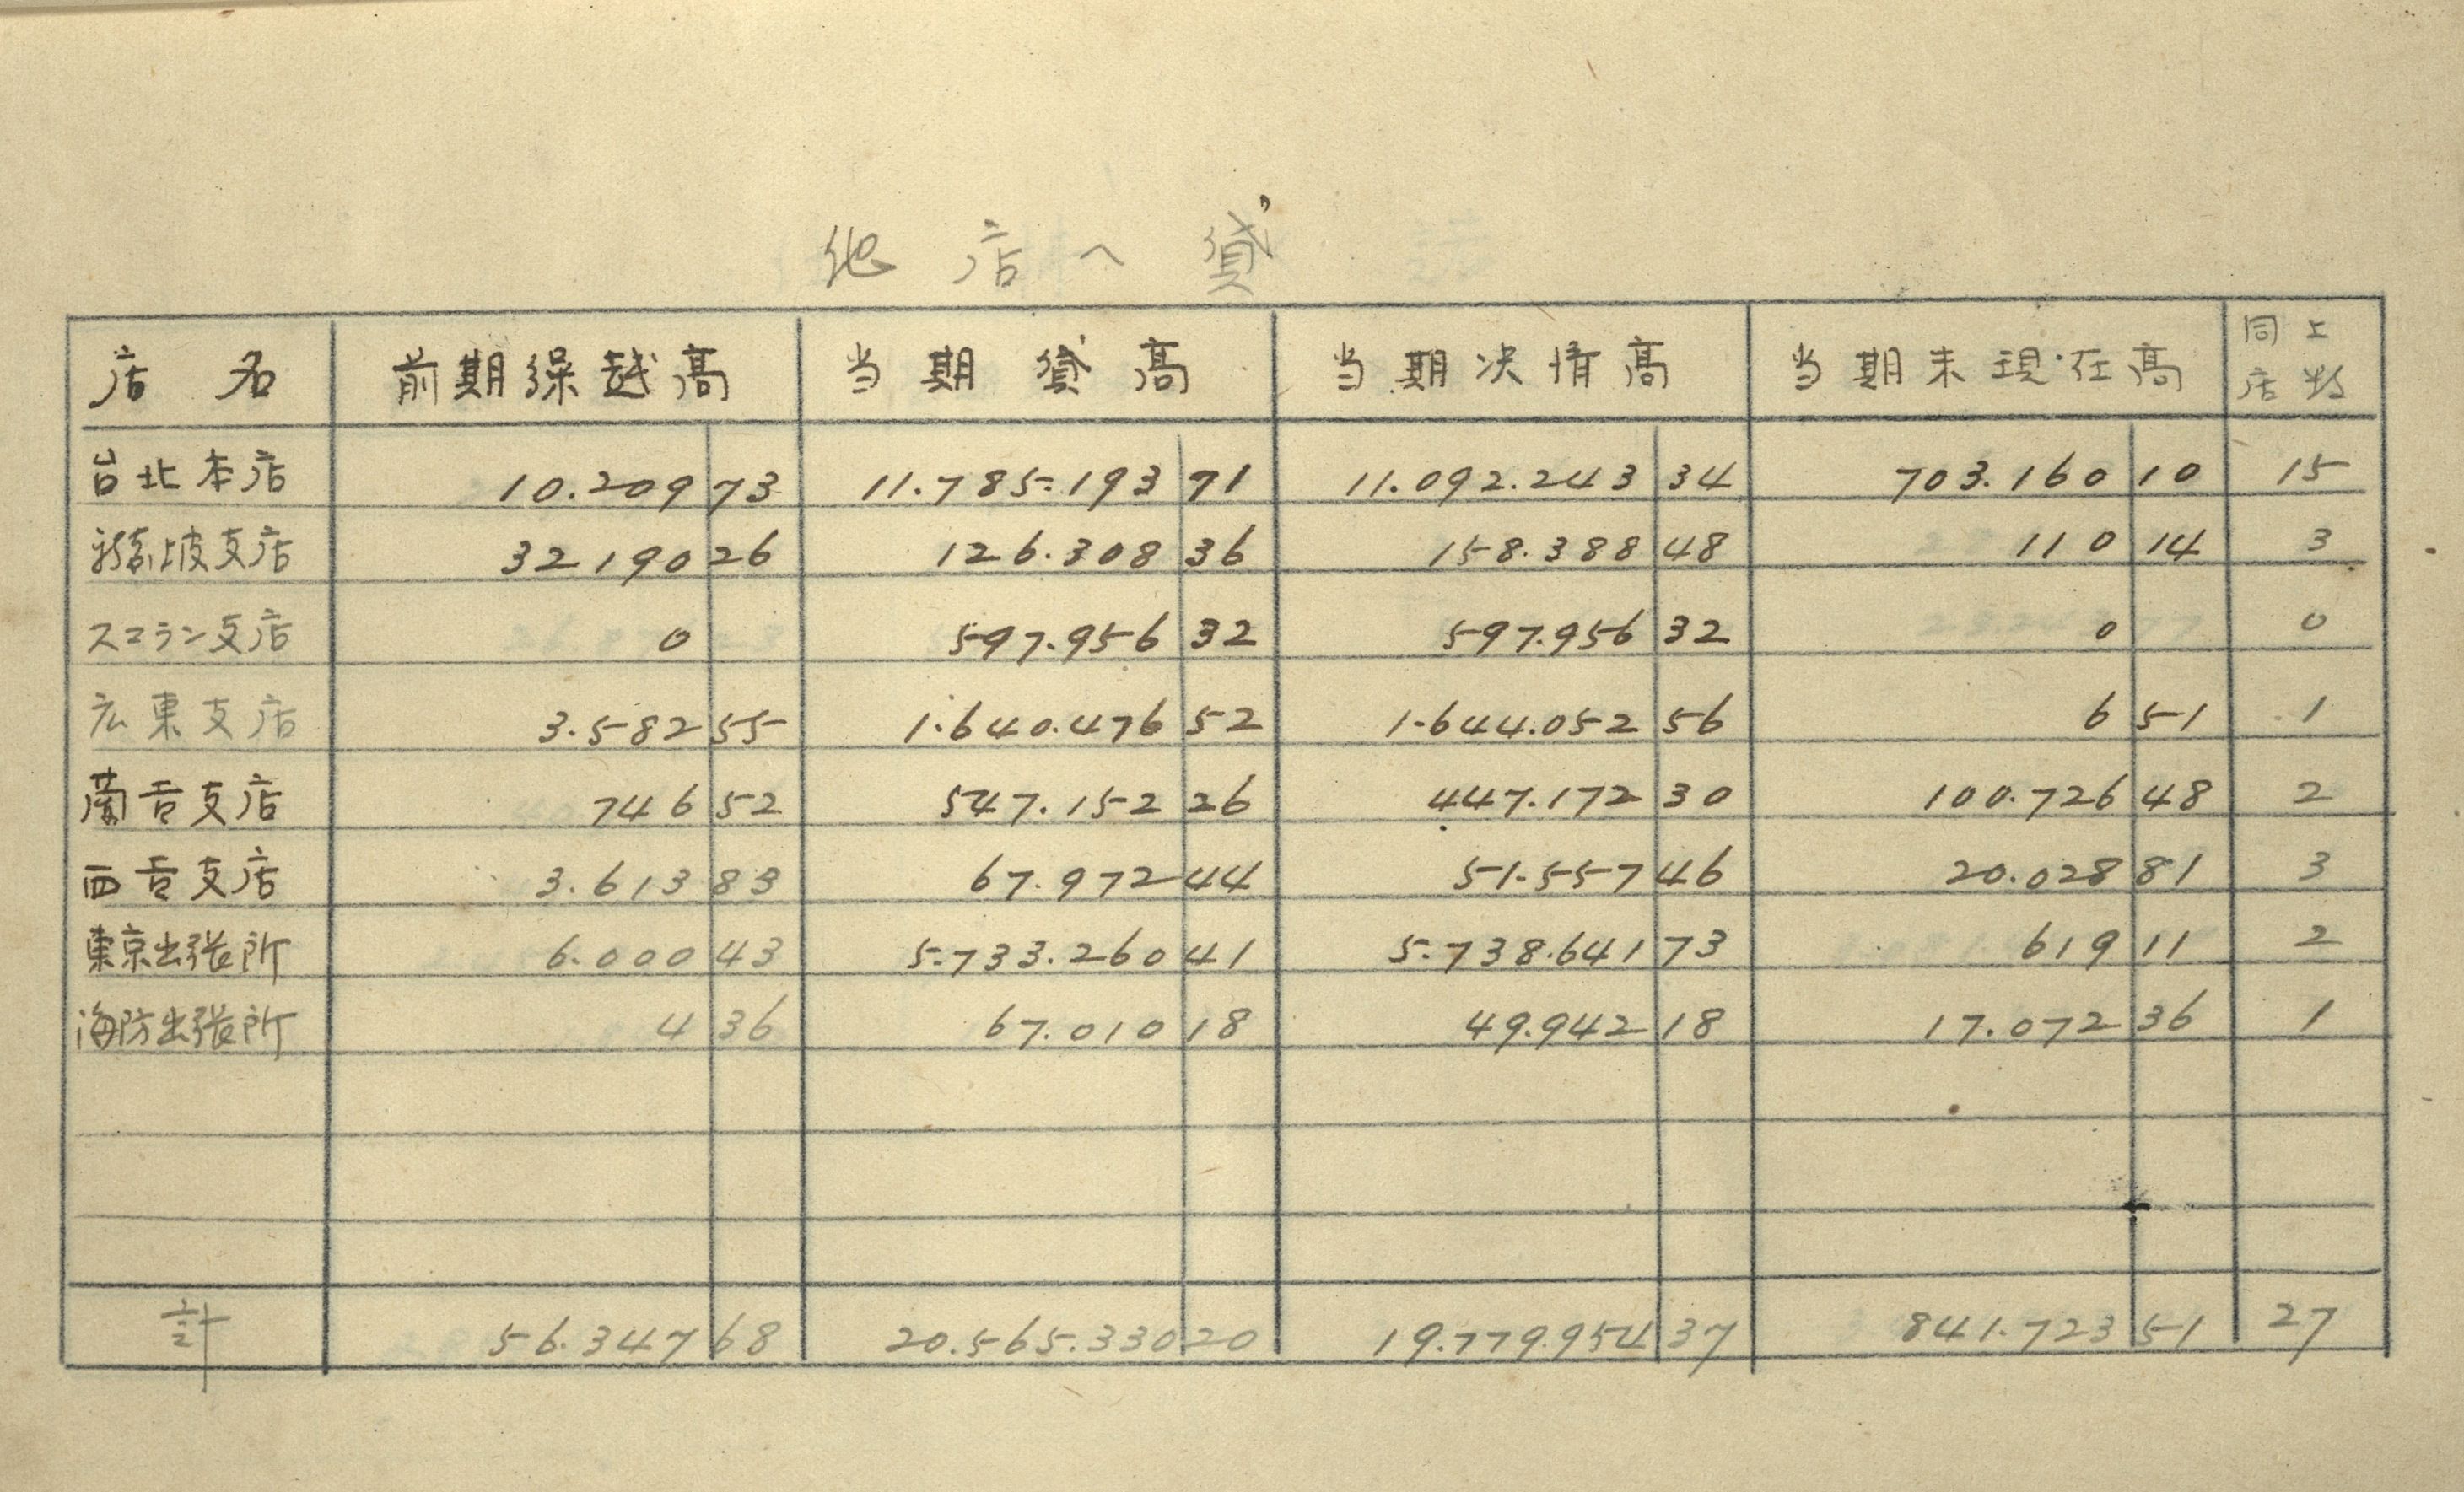 他店へ貸
店名 前期繰越高 当期貸高 当期决済高 当期末現在高 同上店数
台北本店 10.209 73 11.785.193 71 11.092.243 34 703.160 10 15
新嘉坡支店 32190 26 126.308 36 158.388 48 110 14 3
スマラン支店 0 597.956 32 597.956 32 0 0
広東支店 3.582 55 1.640.476 52 1.644.052 56 6 51 1
蘭貢支店 746 52 547.152 26 447.172 30 100.726 48 2
西貢支店 3.613 83 67.972 44 51.557 46 20.028 81 3
東京出張所 6.000 43 5.733.260 41 5.738.641 73 619 11 2
海防出張所 4 36 67.010 18 49.942 18 17.072 36 1
計 56.347 68 20.565.330 20 19.779.954 37 841.723 51 27